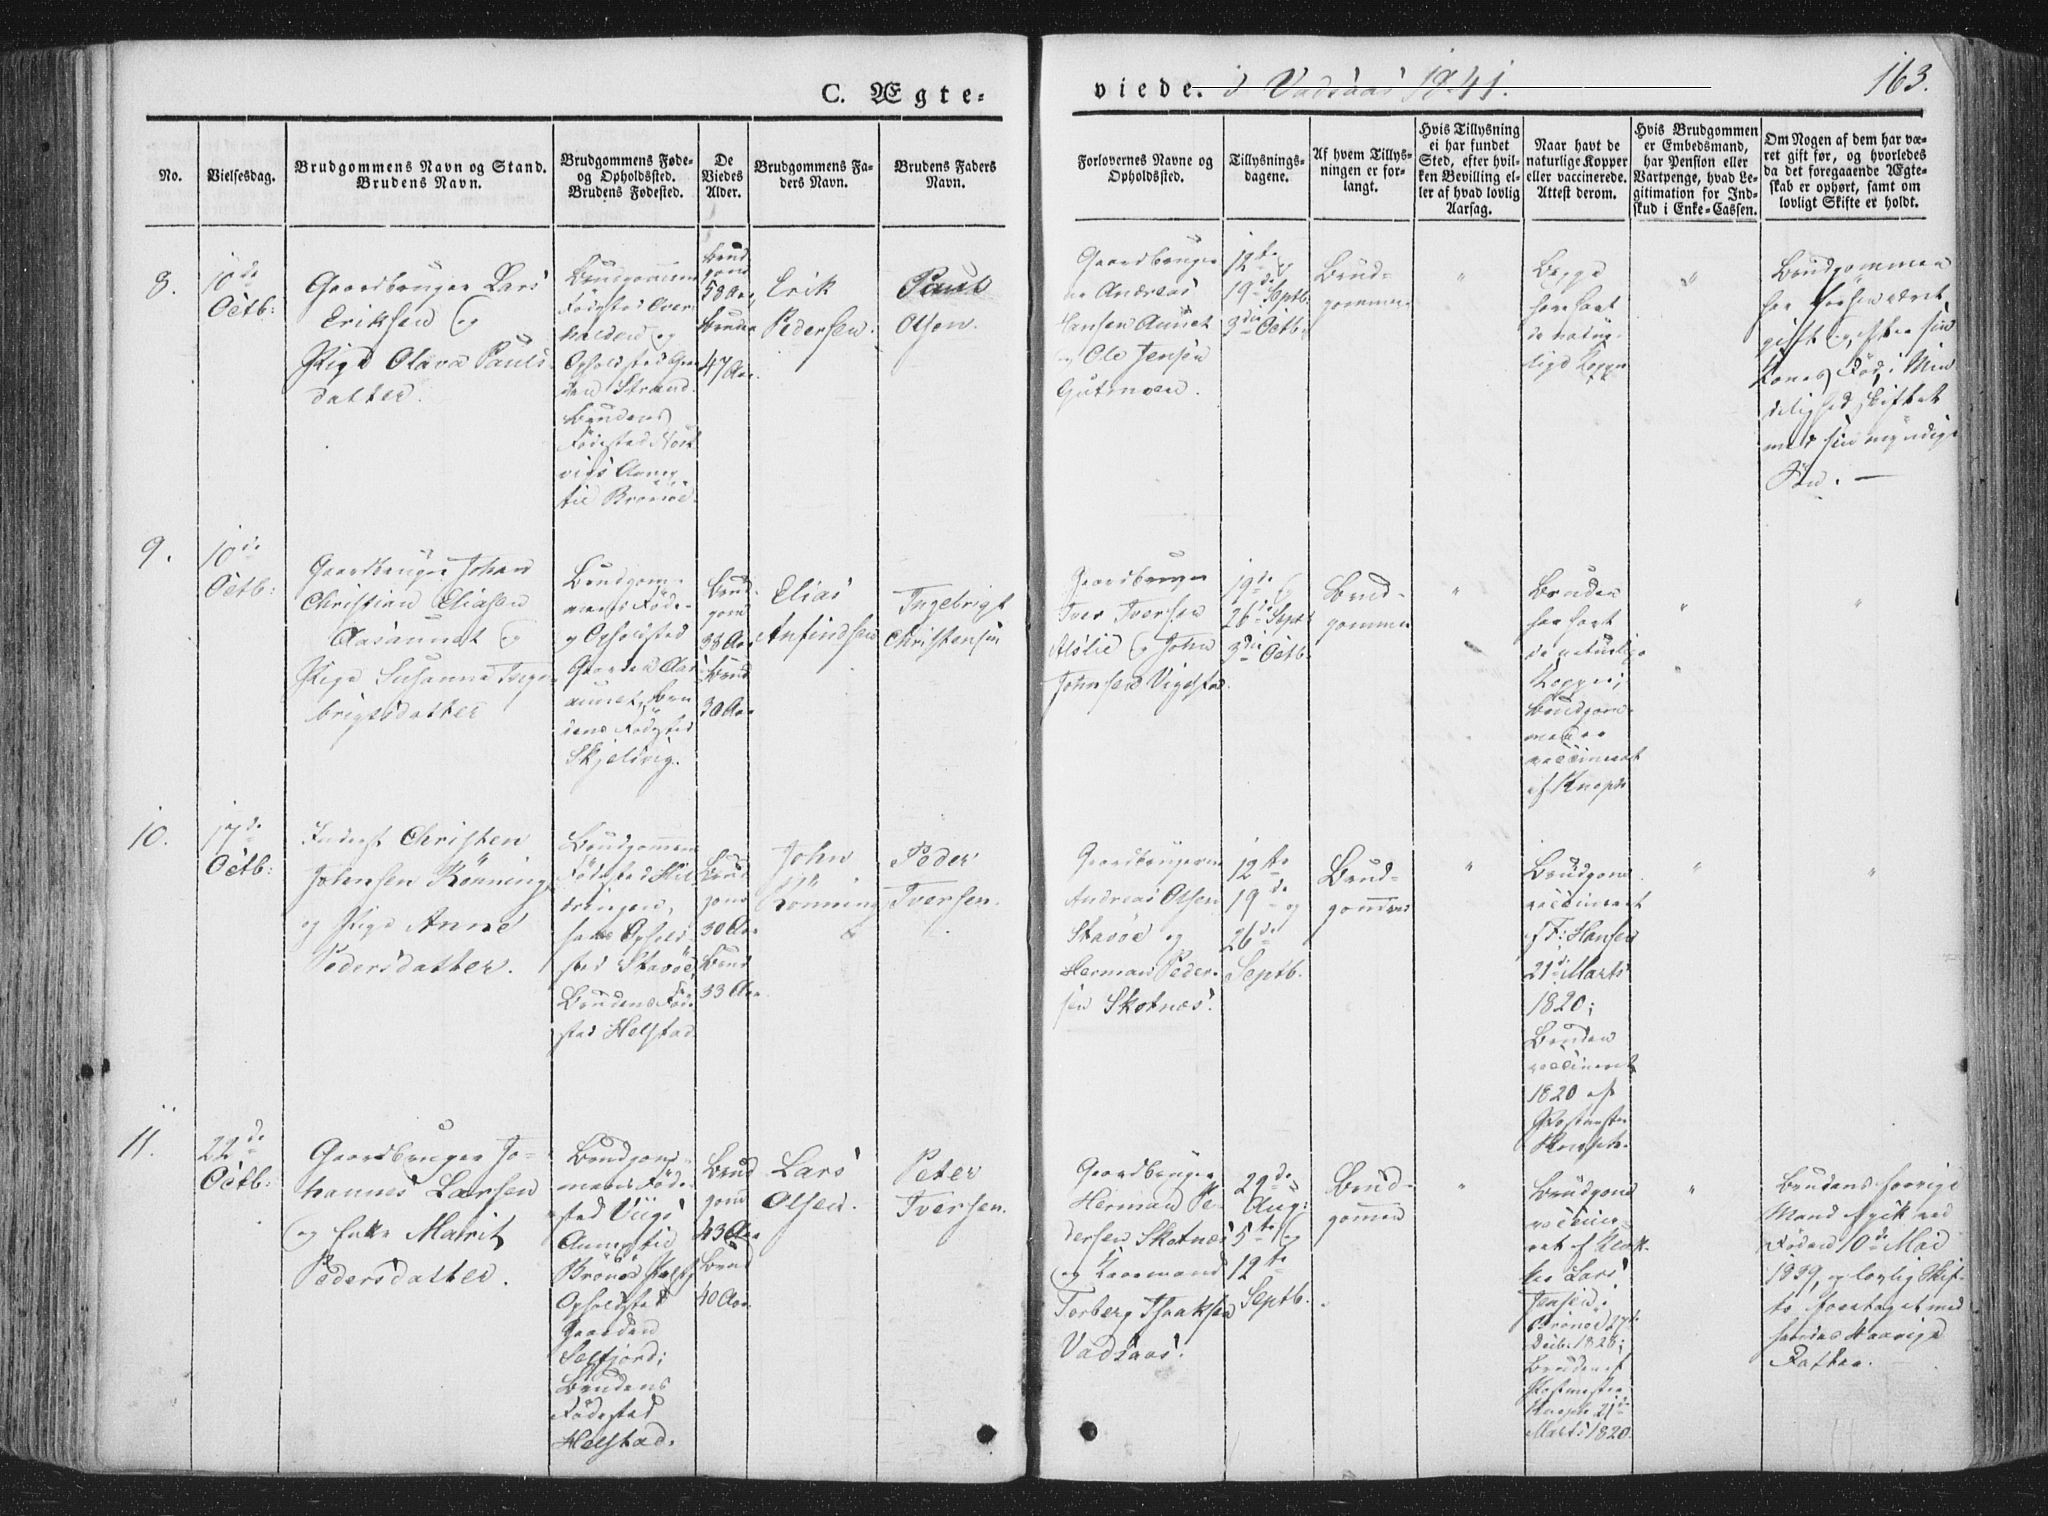 C. Ægte-
viede. i Vadsaas 1841.
163.
No.
Vielsesdag.
Brudgommens Navn og Stand.
Brudens Navn.
Brudgommens Føde-
og Opholdssted.
Brudens Fødested.
De
Viedes
Alder.
Brudgommens Fa-
ders Navn.
Brudens Faders
Navn.
Forlovernes Navne og
Opholdssted.
Tillysnings-
dagene.
Af hvem Tillys-
ningen er for-
langt.
Hvis Tillysning
ei har fundet
Sted, efter hvil-
ken Bevilling el-
ler af hvad lovlig
Aarsag.
Naar havt de
naturlige Kopper
eller vaccinerede.
Attest derom.
Hvis Brudgommen
er Embedsmand,
har Pension eller
Vartpenge, hvad Le-
gitimation for Ind-
skud i Enke-Cassen.
Om Nogen af dem har væ-
ret gift før, og hvorledes
da det foregaaende Ægte-
skab er ophørt, samt om
lovligt Skifte er holdt.
8.
10de
Octb:
Gaardbruger Lars
Eriksen og
Pige Olava Pauls
datter.
Brudgommens
Fødested Over
halden og
Opholdssted Gaar
den Strand
Brudens
Fødested
Annex
til Brönöe
Brud
gom
58 Aar
Brud
47 Aar.
Erik
Pedersen.
Paul
Olsen.
Gaardbruger
ne Andreas
Hansen Aunet
og Ole Jensen
Gutmoen.
12te og
19de Septb.
3die Octb.
Brud-
gommen
"
Begge
have havt
de natur-
lige Kopper
"
Brudgommen
har forhen været
gift og efter sin
Kones Död i Min
delighed skiftet
med sin myndige
Sön. —
9.
10de
Octb:
Gaardbruger Johan
Christian Eliasen
Aasaunet og
Pige Susanna Inge
brigtsdatter
Brudgom-
mens Föde-
og Opholdssted
Gaarden Aas
aunet, Bru
dens Fødested
Skjelvig.
Brud-
gom
38 Aar
Brud
30 Aar
Elias
Anfindsen
Ingebrigt
Christensen
Gaardbruger
Iver Iversen
Aslie og John
Johnsen Vigestad.
19de og
26de Septb
3die Octb.
Brud-
gommen
"
Bruden
har havt
de naturlige
Kopper;
Brudgom-
men er
vaccineret
af Knoph
"
"
10.
17de
Octb:
Inderst Christen
Johnsen Rönning
og Pige Anne
Pedersdatter.
Brudgommens
Fødested Hil-
drengen,
hans Ophold-
sted Stavöe,
Brudens Föde
sted Helstad
Brud
gom
30 Aar
Brud
33 Aar
John
Rönning
Peder
Iversen.
Gaardbrugerne
Andreas Olsen
Stavöe og
Herman Peder-
sen Skotnæs.
12te
19de og
26de
Septb.
Brud-
gommen
"
Brudgom.
vaccineret
af F: Hansen
21de Marts
1820;
Bruden
vaccineret
1820 af
Postmester
Knoph.
"
"
11.
22de
Octb:
Gaardbruger Jo-
hannes Larsen
og Enke Marit
Pedersdatter.
Brudgom-
mens Föde-
sted Viigs
Annex til
Brönöe
Opholdssted
Gaarden
Salfjord;
Brudens
Födested
Helstad.
Brud
gom
43 Aar
Brud
40 Aar.
Lars
Olsen.
Peter
Iversen.
Gaardbruger
Herman Pe-
dersen Skotnæs
og Kaarmand
Torberg Isaksen
Vadsaas.
29de
Aug:
5te og
12te
Septb.
Brud-
gommen
"
Brudgom
vaccine-
ret af Klok-
ker Lars
Jensen.
Brönöe 27de
Decbr. 1828;
Bruden af
Postmester
Knoph 21de
Marts 1820.
"
Brudens forrige
Mand afgik ved
Döden 10de Mai
1839, og lovlig Skif-
te foretaget med
hendes
Fatter.